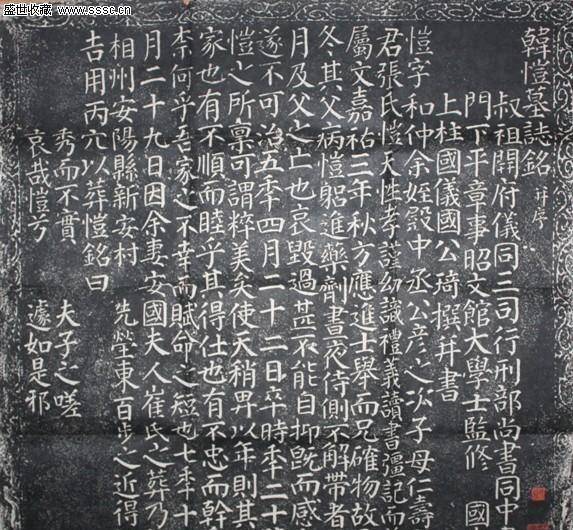 盛世收藏 www.sssc.cn
韓愷墓誌銘 并序
叔祖開府儀同三司行刑部尚書同中
門下平章事昭文館大學士監修 國
上柱國儀國公琦撰并書
愷字和仲余姪殿中丞公彥之次子母仁壽
君張氏愷天性孝謹幼識禮義讀書彊記而
屬文嘉祐三年秋方應進士舉而兄確物故
冬其父病愷躬進藥劑晝夜侍側不解帶者
月及父之亡也哀毀過甚不能自抑旣而感
遂不可治五秊四月二十二日卒時秊二十
愷之所稟可謂粹美矣使天稍畀以年則其
家也有不順而睦乎其得仕也有不忠而幹
柰何乎吾家之不幸而賦命之短也七秊十
月二十九日因余妻安國夫人崔氏之葬乃
相州安陽縣新安村 先塋東百步之近得
吉用丙穴以葬愷銘曰
秀而不實 夫子之嗟
哀哉愷兮 遽如是邪